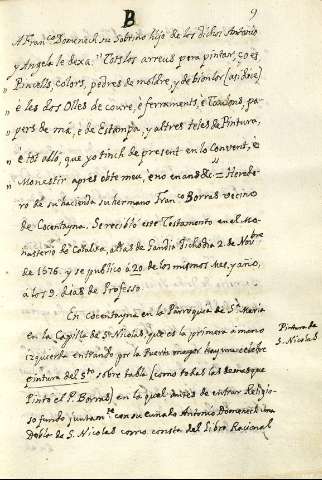 B
9
A Franco. Domenech su Sobrino hijo de los dichos Antonio
y Angela le dexa: "Tots los arreus pera pintar, ço es
" Pincells, colors, pedres de moldre, y de bronlos (asi dice)
" è les dos Olles de coure, è ferraments, è Taulons, pa-
" pers de ma, è de Estampa, y altres teles de Pintura,
" è tot allò, que yo tinch de present en lo Convent, è
" Monestir apres obte meu, è no en ans &c. = Herede-
ro de su hacienda su hermano Franco. Borras vecino
de Cocentayna. Se recibiò este Testamento en el Mo-
nasterio de Cotalva, alias de Gandia dicho dia 2. de Novbre.
de 1676. y se publicò à 20. de los mismos Mes, y año,
à los 9. dias de Professo.
En Cocentayna en la Parroquia de Sta. Maria
en la Capilla de Sn. Nicolas, que es la primera à mano
izquierda entrando por la Puerta mayor hay una celebre
pintura del Sto. sobre tabla (como todas las demas que
Pintò el P. Borras) en la qual antes de entrar Religio-
so fundò juntamte. con su cuñado Antonio Domenech una
Dobla de S. Nicolas como consta del Libro Racional
Pintura de
S. Nicolas